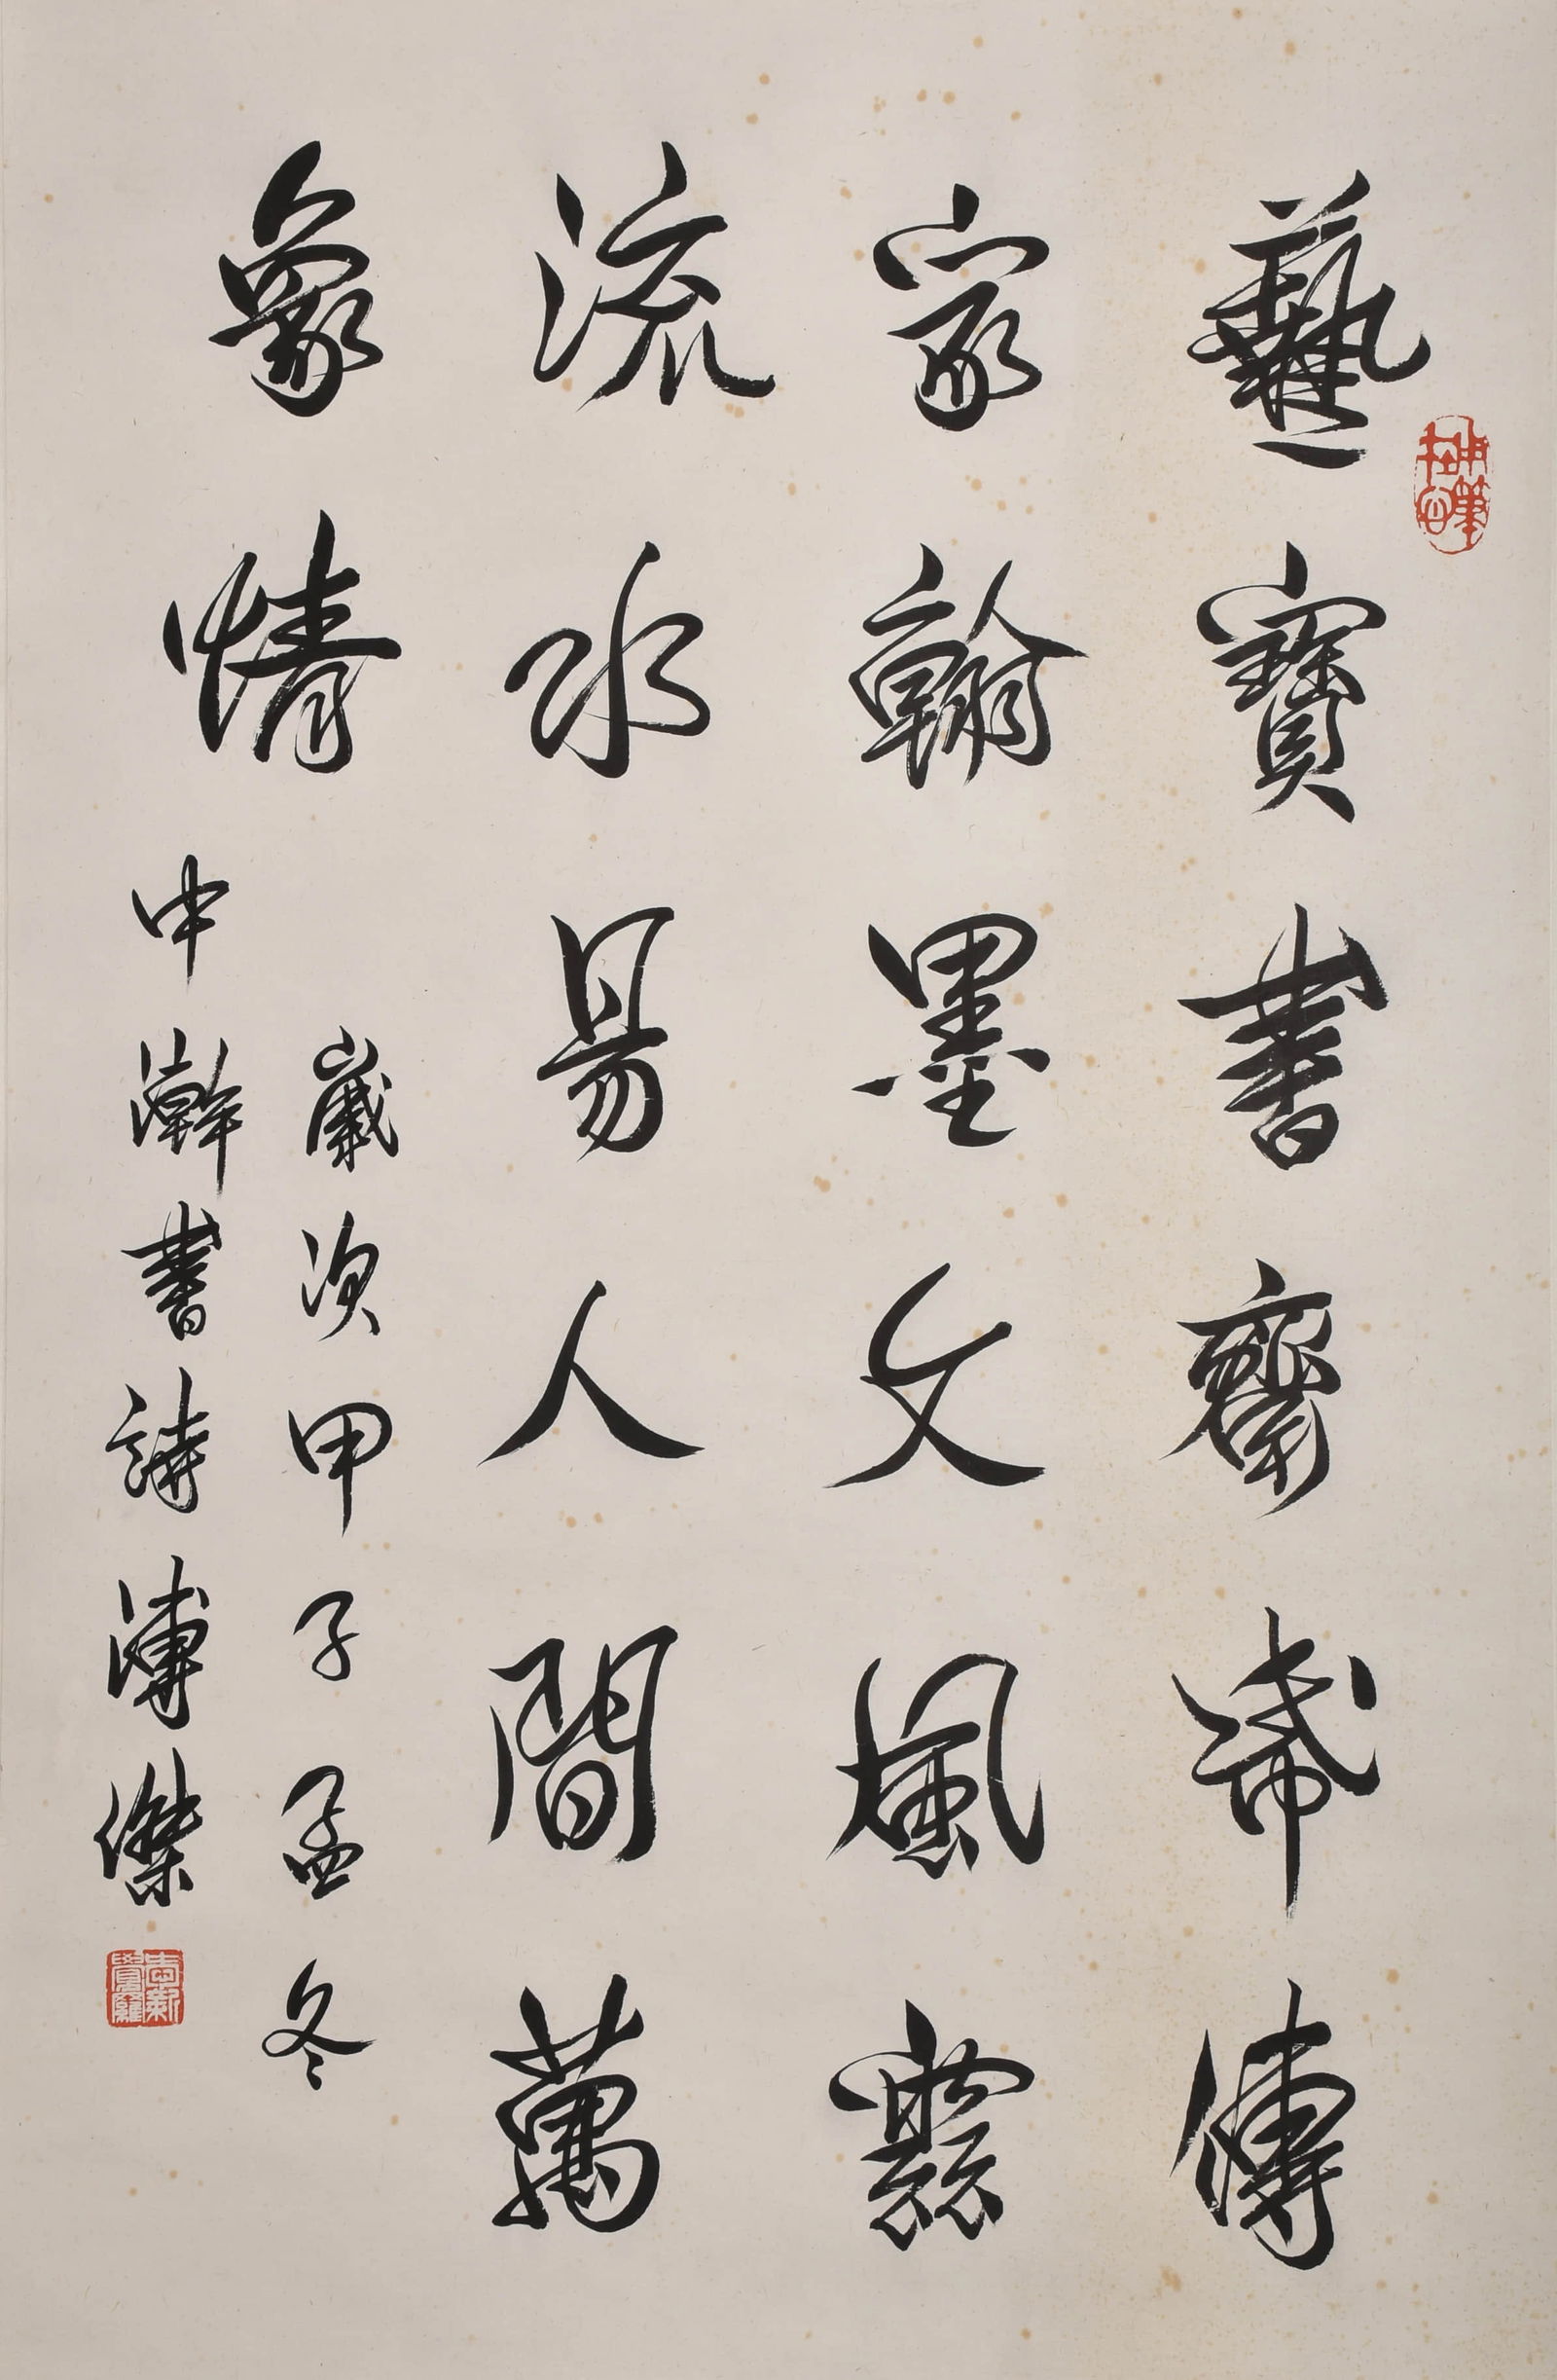 藝寶書齋歲傳
家翰墨文風雲
流水易人間萬
象情
歲次甲子孟冬
中瀚書詩溥傑
愛新覺羅